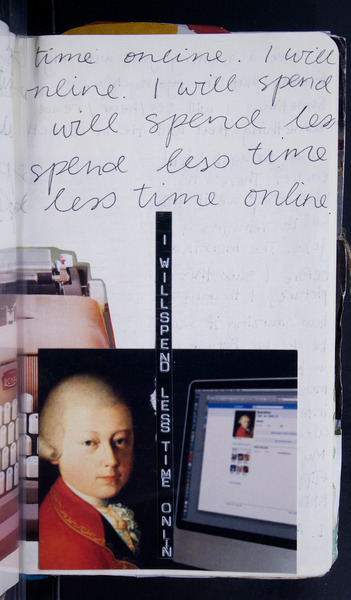 time online. I will
nline. I will spend
will spend less
spend less time
less time online.
I WILLSPEND LESS TIME ONLIN